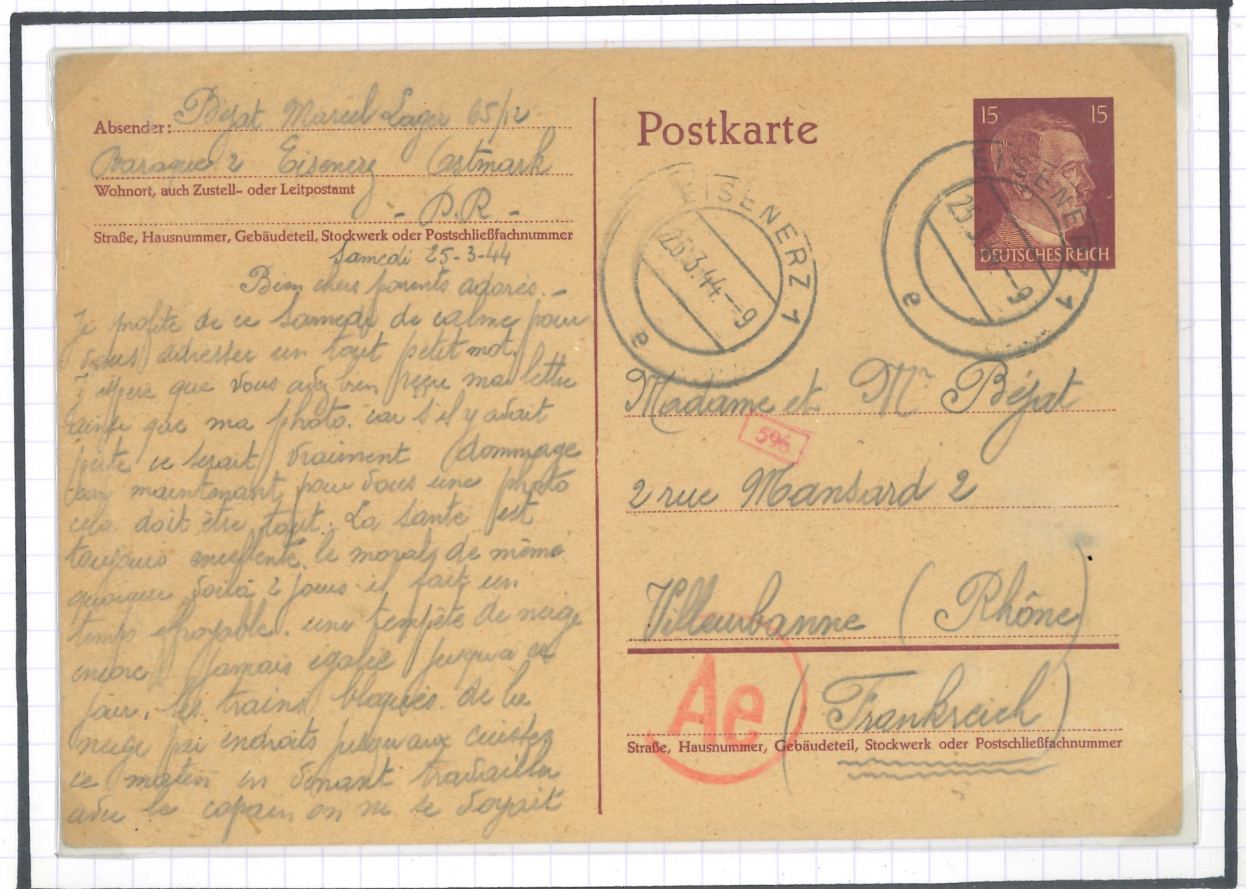 Absender: Béjat Marcel Lager 65/12
Baraque 2 Eisenerz Ostmark
Wohnort, auch Zustell- oder Leitpostamt
- P.R -
Straße, Hausnummer, Gebäudeteil, Stockwerk oder Postschließfachnummer
Samedi 25-3-44
Bien chers parents adorés. -
Je profite de ce Samedi de calme pour
vous adresser un tout petit mot.
J'espère que vous avez bien reçu ma lettre
ainsi que ma photo. car s'il y avait
perte ce serait vraiment dommage
car maintenant pour vous une photo
cela doit être tout. La santé est
toujours excellente. le moral de même
quoique voilà 2 jours il fait un
temps effroyable. une tempête de neige
encore jamais égalée jusqu'à ce
jour. les trains bloqués de la
neige par endroits jusqu'aux cuisses
ce matin en venant travailler
avec le copain on ne se voyait
Postkarte
15 15
DEUTSCHES REICH
EISENERZ 1
25.3.44.-9
e
EISENERZ 1
25.3.44.-9
e
Madame et Mr Béjat
596
2 rue Mansard 2
Villeurbanne (Rhône)
Ae
(Frankreich)
Straße, Hausnummer, Gebäudeteil, Stockwerk oder Postschließfachnummer